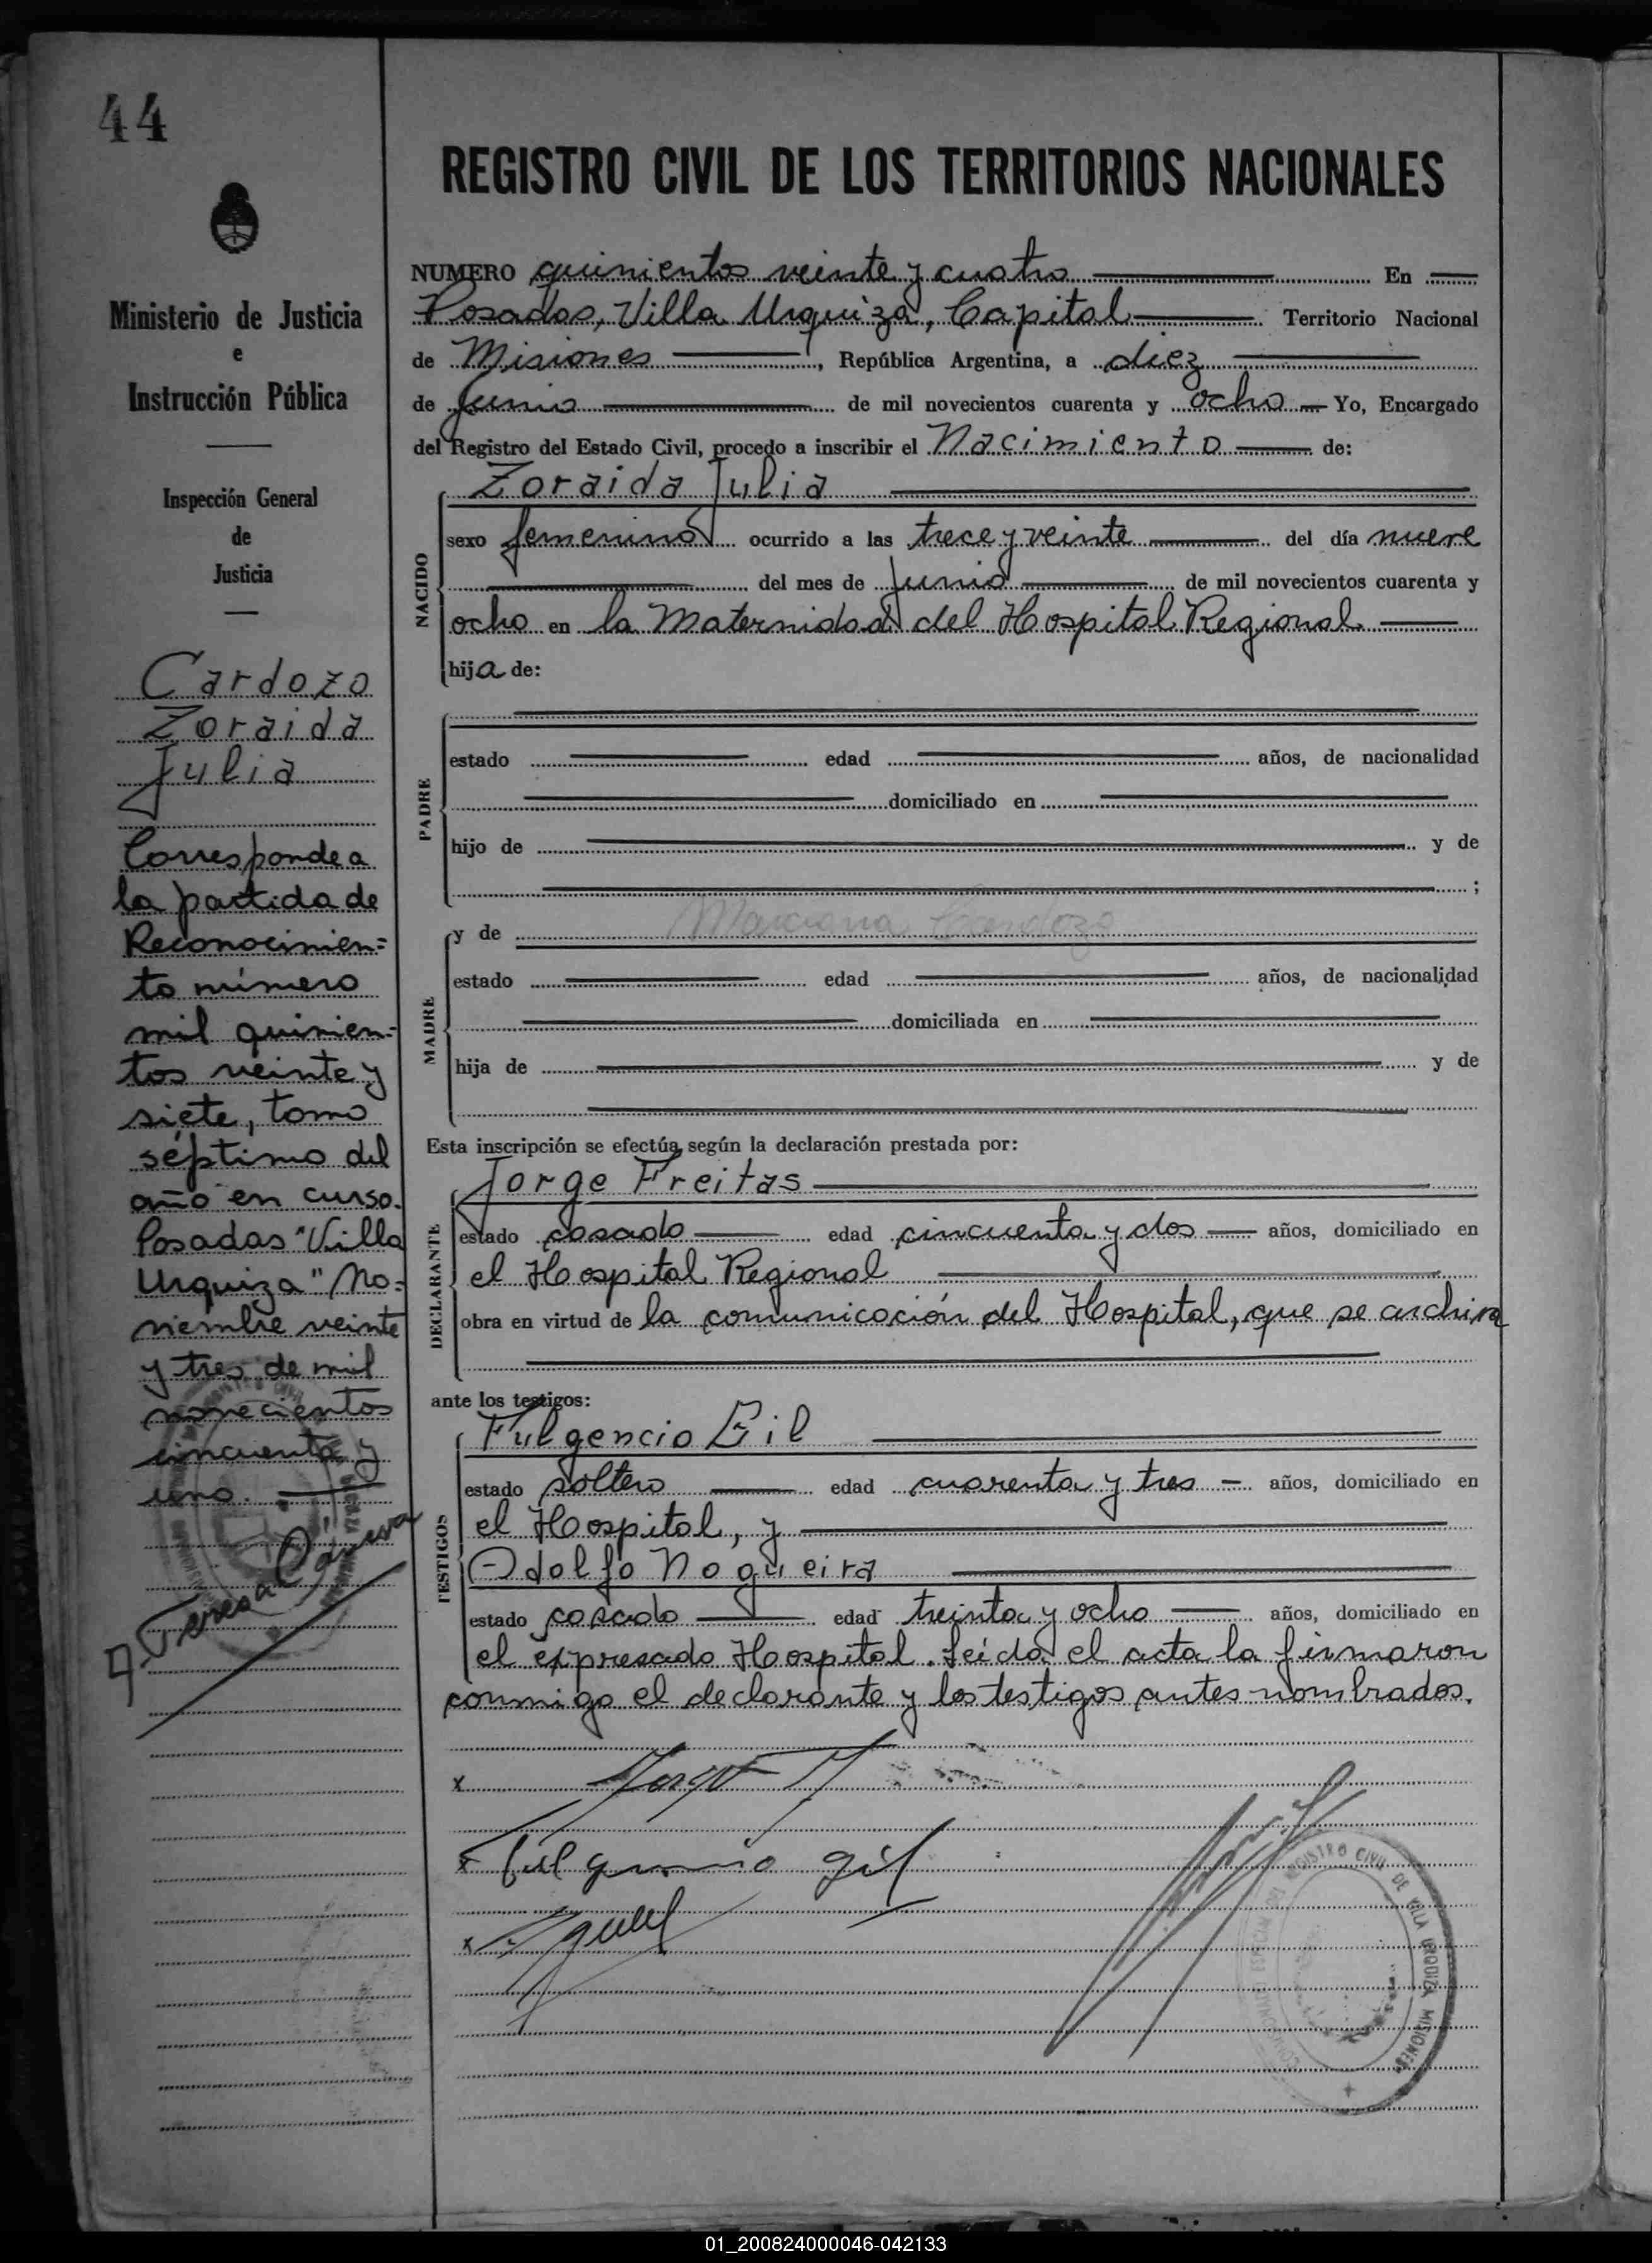 44
REGISTRO CIVIL DE LOS TERRITORIOS NACIONALES
Ministerio de Justicia
e
Instrucción Pública
Inspección General
de
Justicia
Cardozo
Zoraida
Julia
Corresponde a
la partida de
Reconocimien=
to número
mil quinien=
tos veinte y
siete, tomo
séptimo del
año en curso.
Posadas "Villa
Urquiza" No=
viembre veinte
y tres de mil
novecientos
cincuenta y
uno.
NUMERO quinientos veinte y cuatro En
Posadas, Villa Urquiza, Capital Territorio Nacional
de Misiones, República Argentina, a diez
de Junio de mil novecientos cuarenta y ocho Yo, Encargado
del Registro del Estado Civil, procedo a inscribir el Nacimiento de:
Zoraida Julia
NACIDO
sexo femenino ocurrido a las trece y veinte del día nueve
del mes de junio de mil novecientos cuarenta y
ocho en la Maternidad del Hospital Regional
hija de:
PADRE
estado edad años, de nacionalidad
domiciliado en
hijo de y de
;
MADRE
y de Marciana Cardozo
estado edad años, de nacionalidad
domiciliada en
hija de y de
Esta inscripción se efectúa según la declaración prestada por:
DECLARANTE
Jorge Freitas
estado casado edad cincuenta y dos años, domiciliado en
el Hospital Regional
obra en virtud de la comunicación del Hospital, que se archiva
ante los testigos:
TESTIGOS
Fulgencio Gil
estado soltero edad cuarenta y tres años, domiciliado en
el Hospital, y
Adolfo Nogueira
estado casado edad treinta y ocho años, domiciliado en
el expresado Hospital. Leída el acta la firmaron
conmigo el declarante y los testigos antes nombrados.
x
x Fulgencio Gil
x
REGISTRO CIVIL DE VILLA URQUIZA MISIONES
01_200824000046-042133